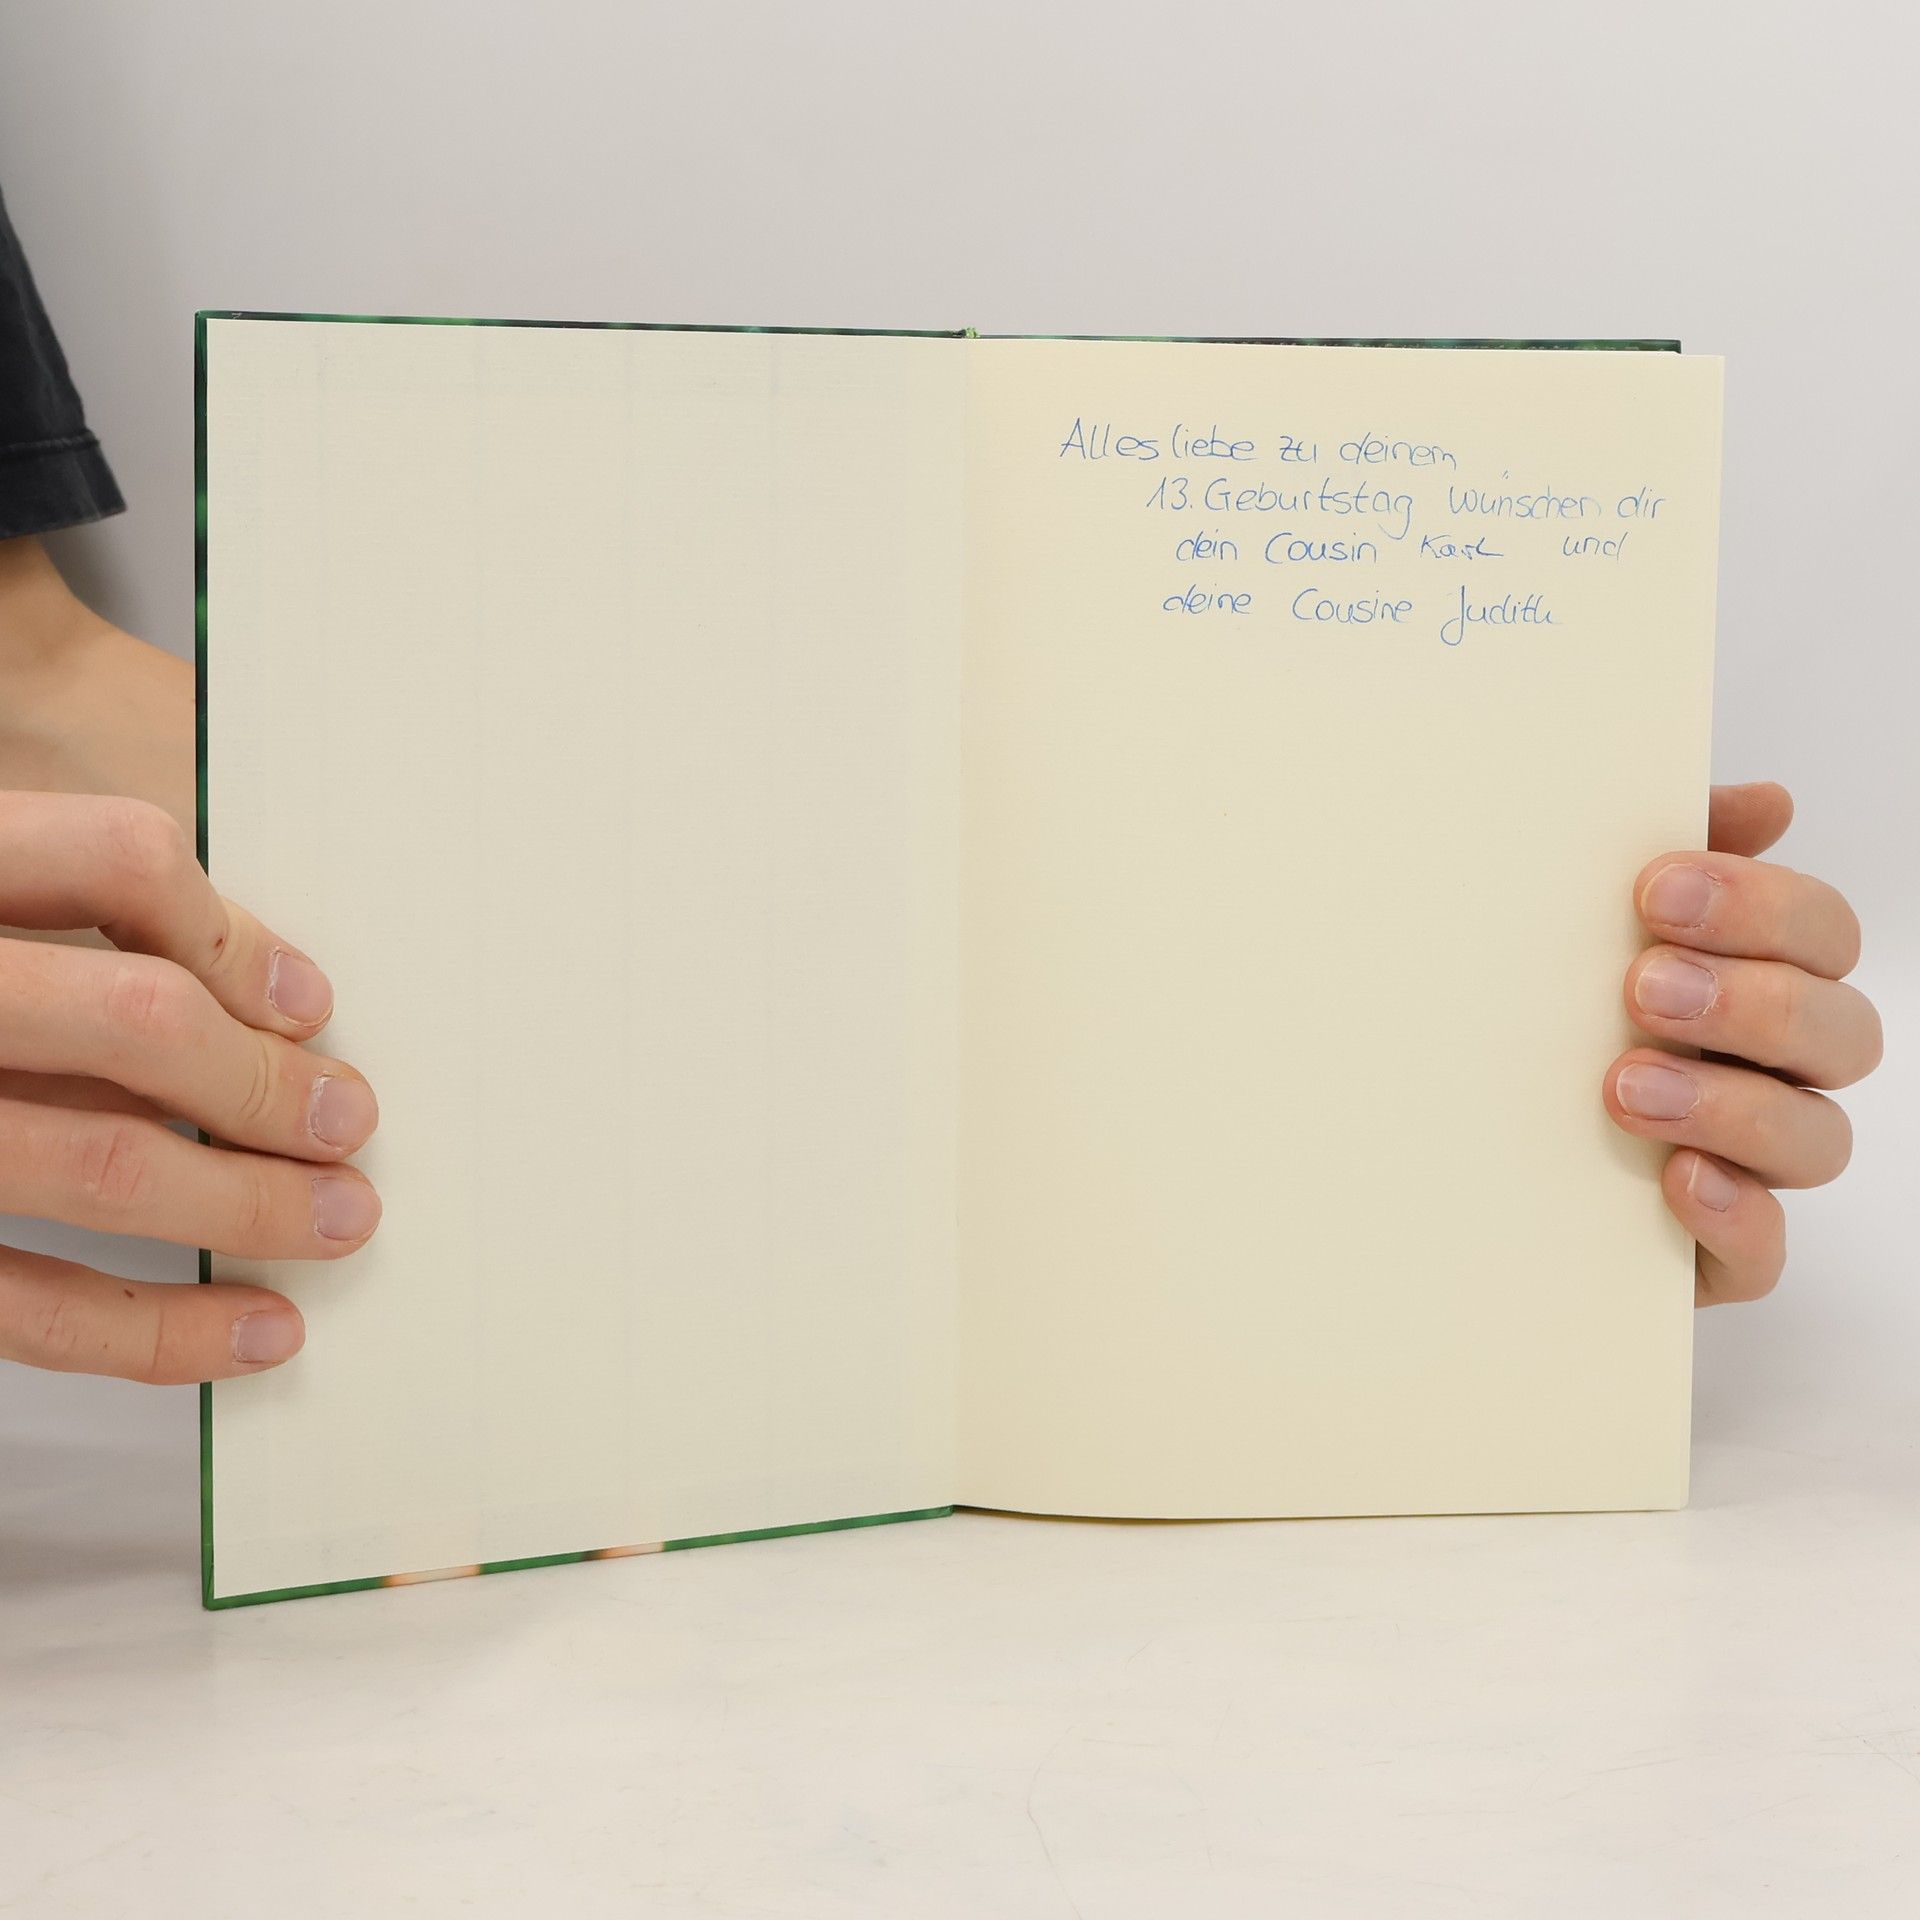 Alles liebe zu deinem
13. Geburtstag wünschen dir
dein Cousin Karl und
deine Cousine Judith